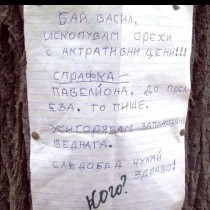 БАЙ ВАСИЛ,
ИСКОПУВАМ ОРЕХИ
С АКТРАТИВНИ ЦЕНИ!!!
СПРАФКА
ПАВЕЛЙОНА, ДО ПРОЛ-
ЕЗА. ТО ПИШЕ.
УСИТОРЯВАМ ЗАПЛАЩАНЕ
ВЕДНАТА.
СЛЕДОБЕД ЧУКАЙ
ЗДРАВО!
КОГО?